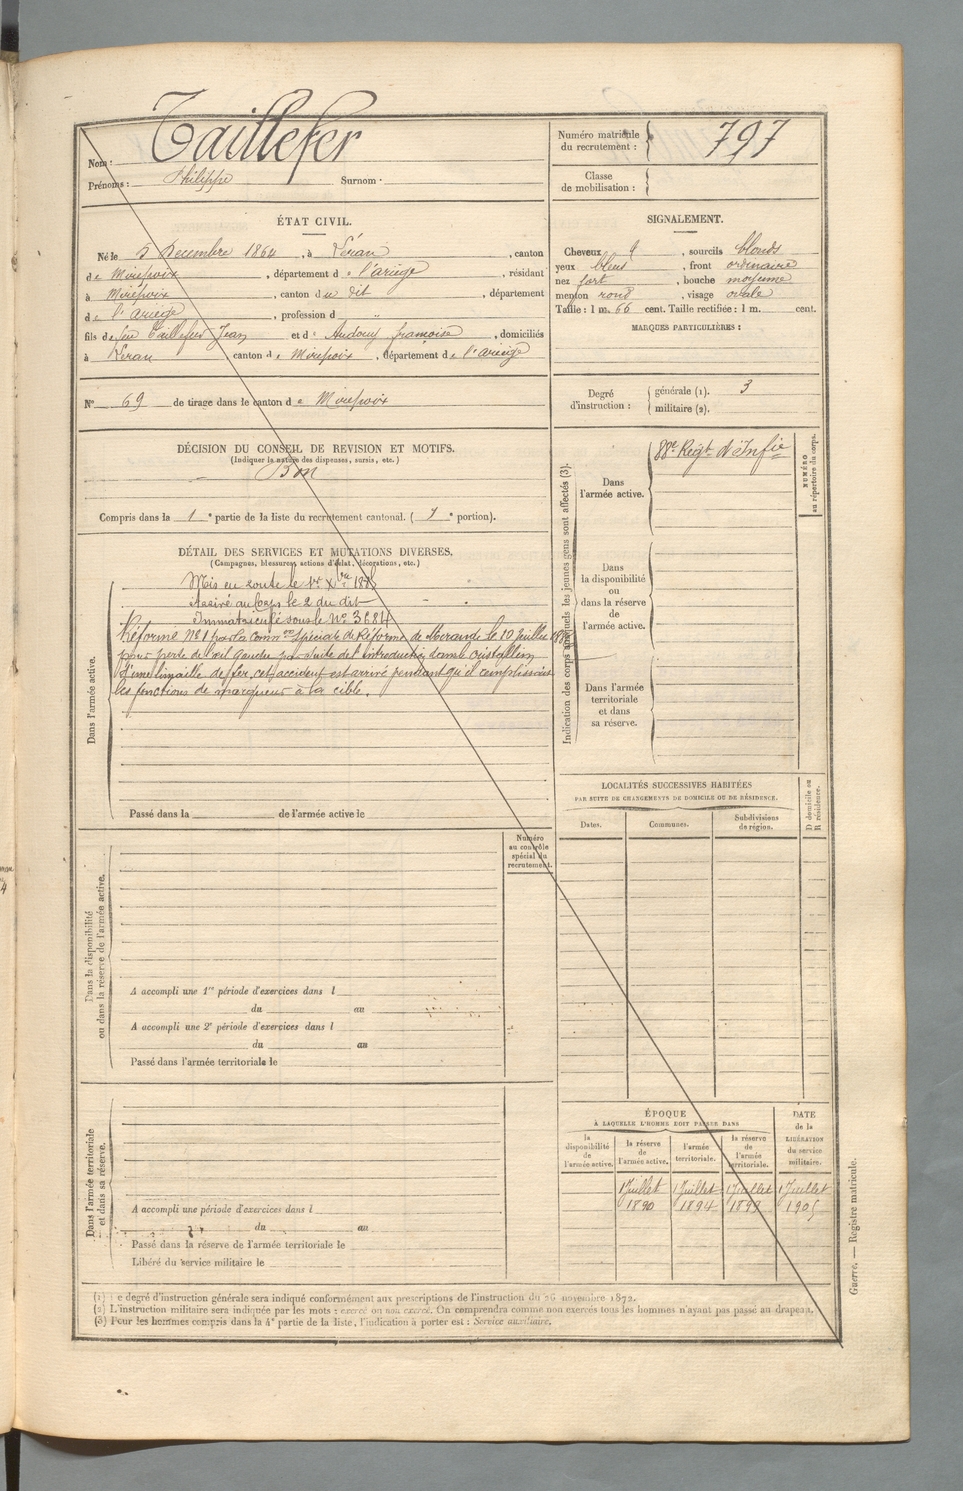 Taillefer
Nom :
Prénoms : Philippe Surnom :
Numéro matricule du recrutement : 797
Classe de mobilisation :
ÉTAT CIVIL.
Né le 5 Decembre 1864, à Léran, canton
de Mirepoix, département de l'ariège, résidant
à Mirepoix, canton du dit, département
de l'ariège, profession d "
fils de feu Taillefer Jean et d'Audouy françoise, domiciliés
à Léran canton de Mirepoix, département de l'ariège
N° 69 de tirage dans le canton de Mirepoix
SIGNALEMENT.
Cheveux , sourcils blonds
yeux bleus, front ordinaire
nez fort, bouche moyenne
menton rond, visage ovale
Taille : 1 m. 66 cent. Taille rectifiée : 1 m. cent.
MARQUES PARTICULIÈRES :
Degré d'instruction : générale (1). 3
militaire (2).
DÉCISION DU CONSEIL DE REVISION ET MOTIFS.
(Indiquer la nature des dispenses, sursis, etc.)
Bon
Compris dans la 1e partie de la liste du recrutement cantonal. ( 1e portion).
DÉTAIL DES SERVICES ET MUTATIONS DIVERSES.
(Campagnes, blessures, actions d'éclat, décorations, etc.)
Dans l'armée active.
Mis en route le 1er Xbre 188
Arrivé au Corps le 2 du dit
Immatriculé sous le N° 3684
Réformé N° 1 par la Comm on Spéciale de Réforme de Mirande le 10 Juillet
pour perte de l'œil gauche par suite de l'introduction dans le cristallin
d'une limaille de fer, cet accident est arrivé pendant qu'il remplissait
les fonctions de marqueur à la cible.
Passé dans la de l'armée active le
Indication des corps auxquels les jeunes gens sont affectés (3).
Dans l'armée active.
88e Regt d'Infie
NUMÉRO au répertoire du corps.
Dans la disponibilité ou dans la réserve de l'armée active.
Dans l'armée territoriale et dans sa réserve.
LOCALITÉS SUCCESSIVES HABITÉES
PAR SUITE DE CHANGEMENTS DE DOMICILE OU DE RÉSIDENCE.
Dates. Communes. Subdivisions de région. D domicile ou R résidence.
Numéro au contrôle spécial du recrutement.
Dans la disponibilité ou dans la réserve de l'armée active.
A accompli une 1re période d'exercices dans l
du au
A accompli une 2e période d'exercices dans l
du au
Passé dans l'armée territoriale le
Dans l'armée territoriale et dans sa réserve.
A accompli une période d'exercices dans l
du au
Passé dans la réserve de l'armée territoriale le
Libéré du service militaire le
ÉPOQUE
À LAQUELLE L'HOMME DOIT PASSER DANS
DATE de la LIBÉRATION du service militaire.
la disponibilité de l'armée active.
la réserve de l'armée active.
l'armée territoriale.
la réserve de l'armée territoriale.
1 Juillet 1 Juillet 1 Juillet 1 Juillet
1890 1894 1899 1905
(1) Le degré d'instruction générale sera indiqué conformément aux prescriptions de l'instruction du 26 novembre 1872.
(2) L'instruction militaire sera indiquée par les mots : exercé ou non exercé. On comprendra comme non exercés tous les hommes n'ayant pas passé au drapeau.
(3) Pour les hommes compris dans la 4e partie de la liste, l'indication à porter est : Service auxiliaire.
Guerre. — Registre matricule.